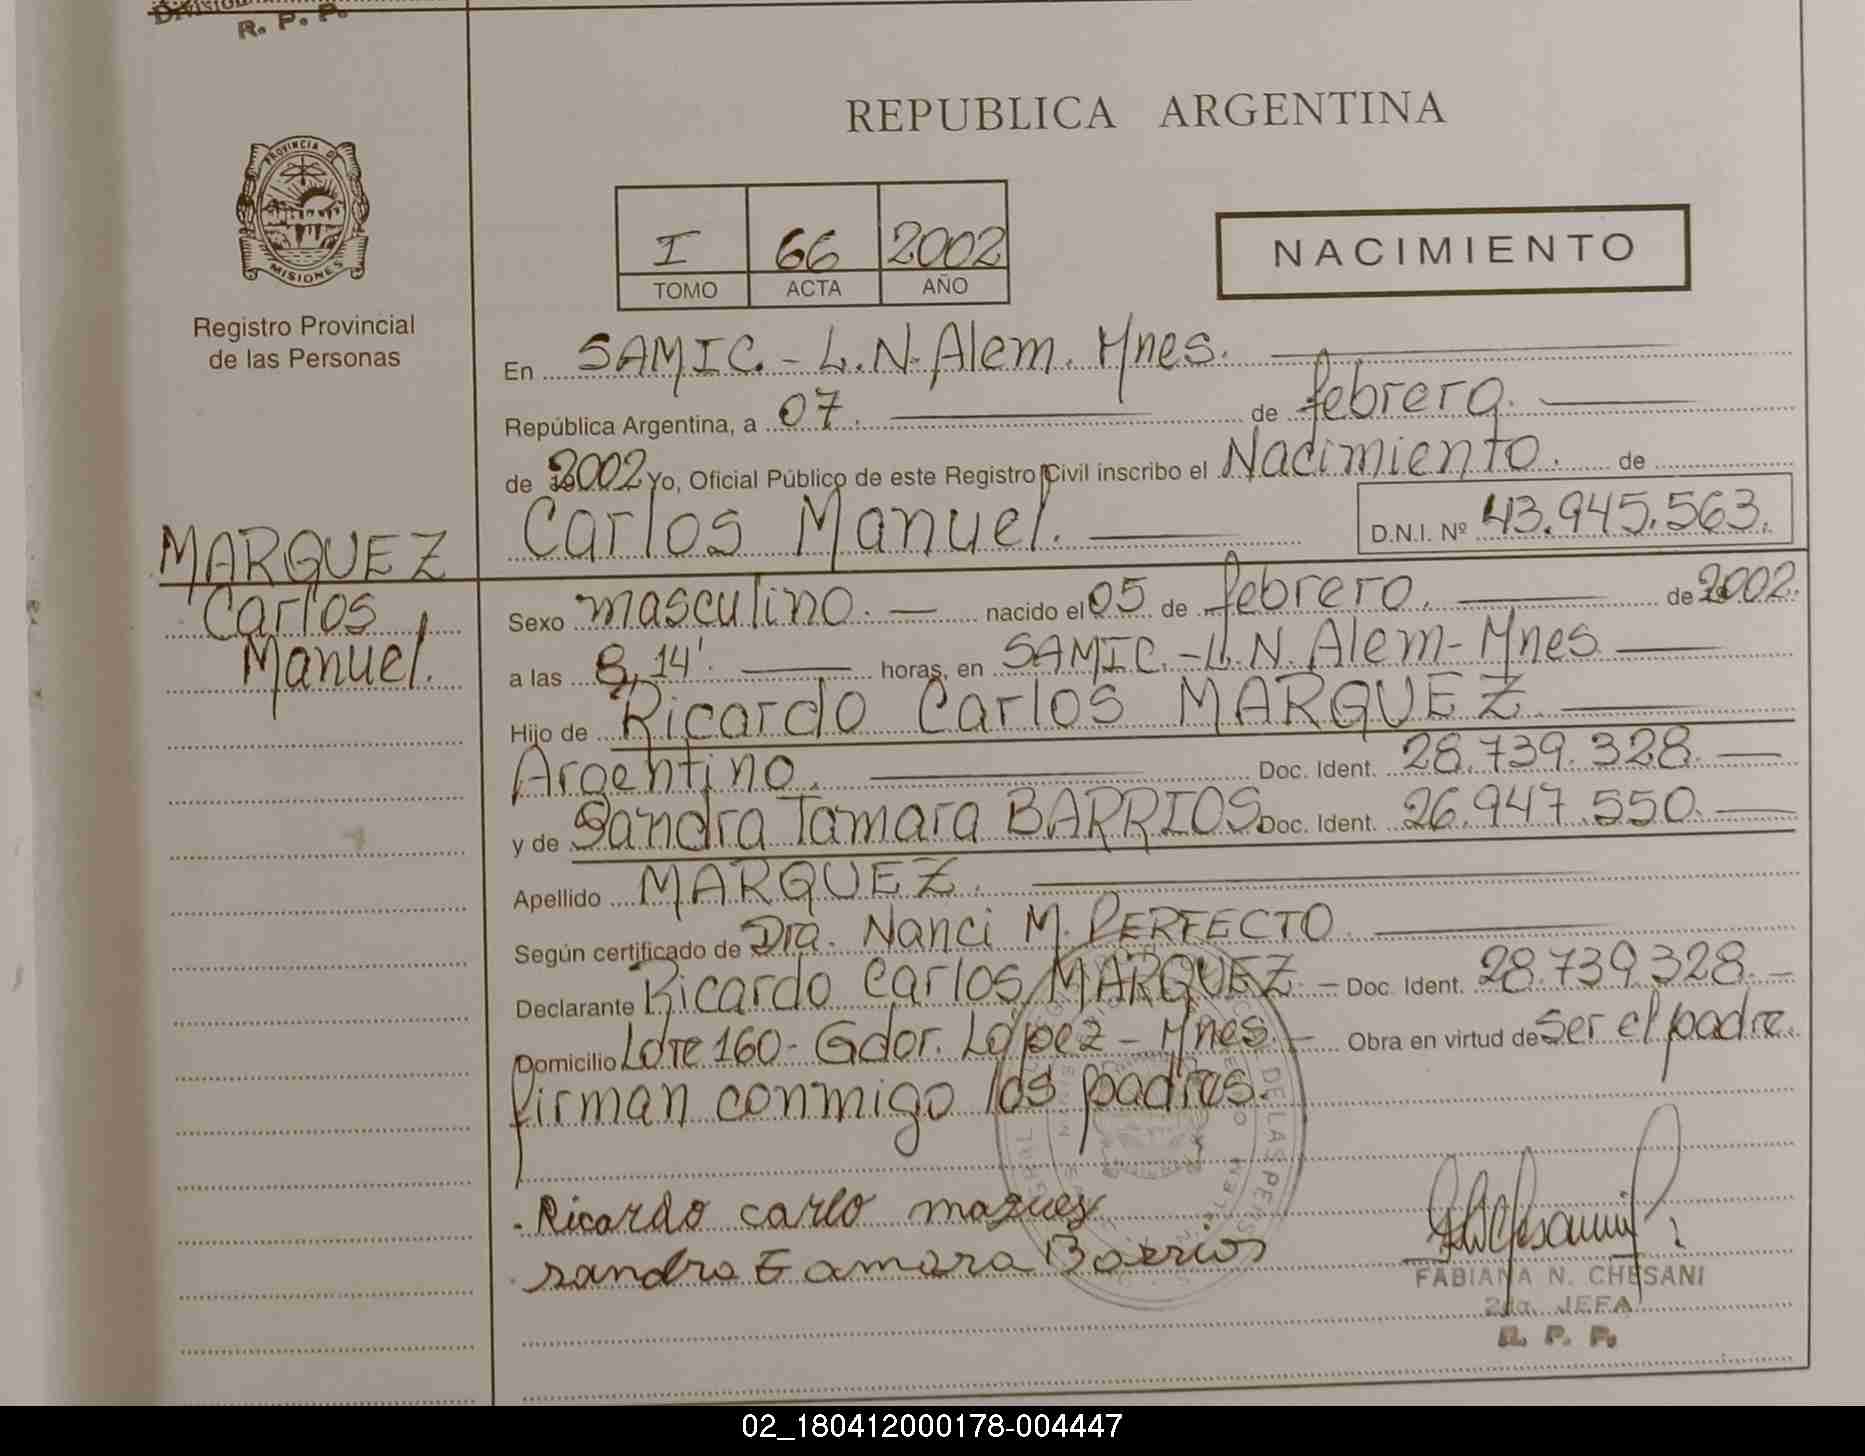 División
R. P. P.
REPUBLICA ARGENTINA
PROVINCIA DE
MISIONES
Registro Provincial
de las Personas
I 66 2002
TOMO ACTA AÑO
NACIMIENTO
En SAMIC. - L.N. Alem. Mnes.
República Argentina, a 07. de febrero.
de 2002 Yo, Oficial Público de este Registro Civil inscribo el Nacimiento. de
Carlos Manuel. D.N.I. Nº 43.945.563.
MARQUEZ
Carlos
Manuel.
Sexo masculino. nacido el 05 de febrero. de 2002.
a las 8,14'. horas, en SAMIC. - L.N. Alem - Mnes
Hijo de Ricardo Carlos MARQUEZ
Argentino. Doc. Ident. 28.739.328.
y de Sandra Tamara BARRIOS Doc. Ident. 26.947.550.
Apellido MARQUEZ.
Según certificado de Dra. Nanci M. PERFECTO.
Declarante Ricardo Carlos MARQUEZ - Doc. Ident. 28.739.328.
Domicilio Lote 160 - Gdor. López - Mnes. Obra en virtud de Ser el padre.
firman conmigo los padres.
Ricardo carlo mazues
sandra tamara Barrios
FABIANA N. CHESANI
2da. JEFA
R. P. P.
02_180412000178-004447